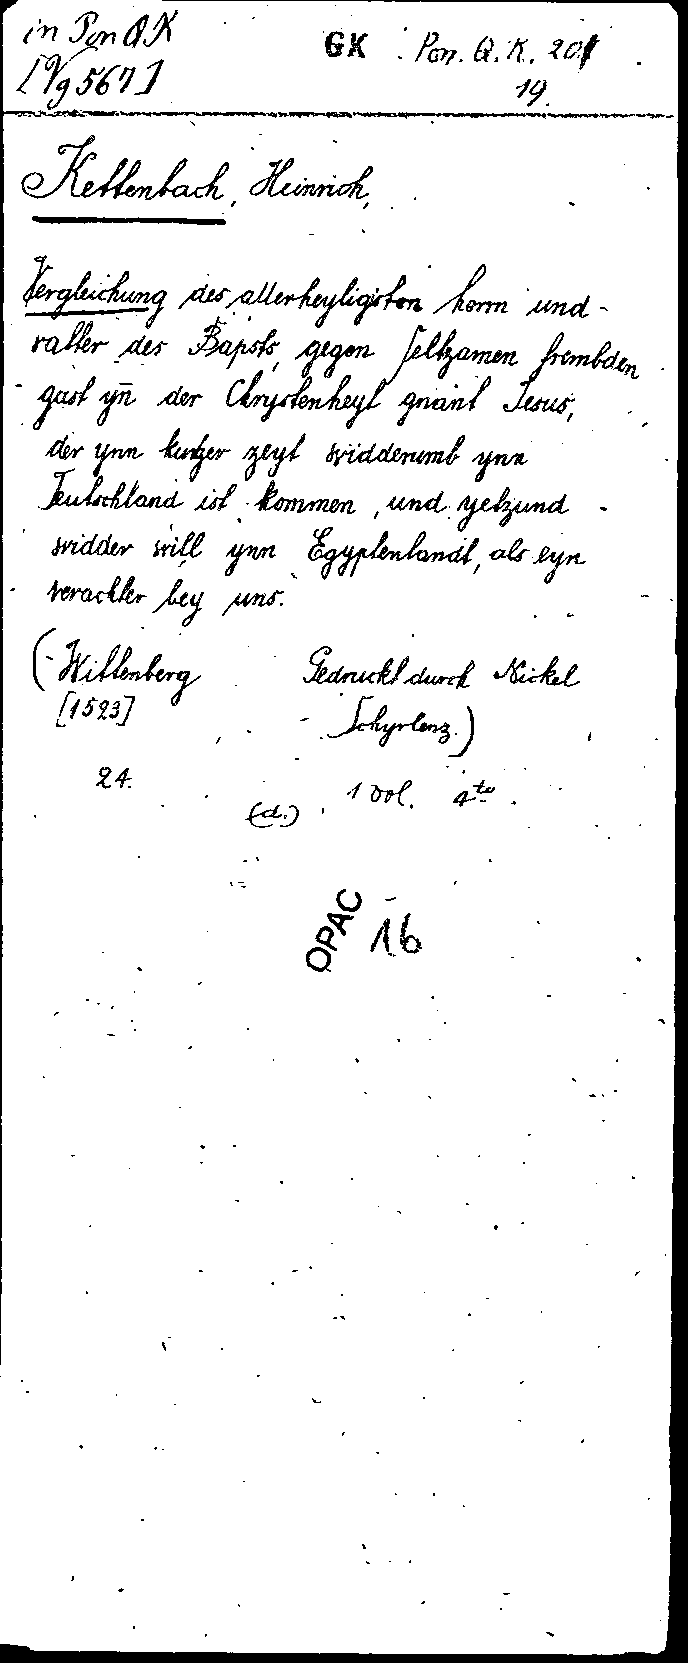 in Pon QK GK Pon. Q. K. 201
[Vg 567] 19.
Kettenbach, Heinrich,
Vergleichung des allerheyligsten herrn und
vatter des Bapsts, gegen seltzamen frembden
gast yn̄ der Chrystenheyt gnant Jesus,
der ynn kutzer zeyt widderumb ynn
Teutschland ist kommen, und yetzund
widder will ynn Egyptenlandt, als eyn
verachter bey uns.
(Wittenberg Gedruckt durch Nickel
[1523] Schyrlenz.)
24. (d.) 1 vol. 4to
OPAC 16